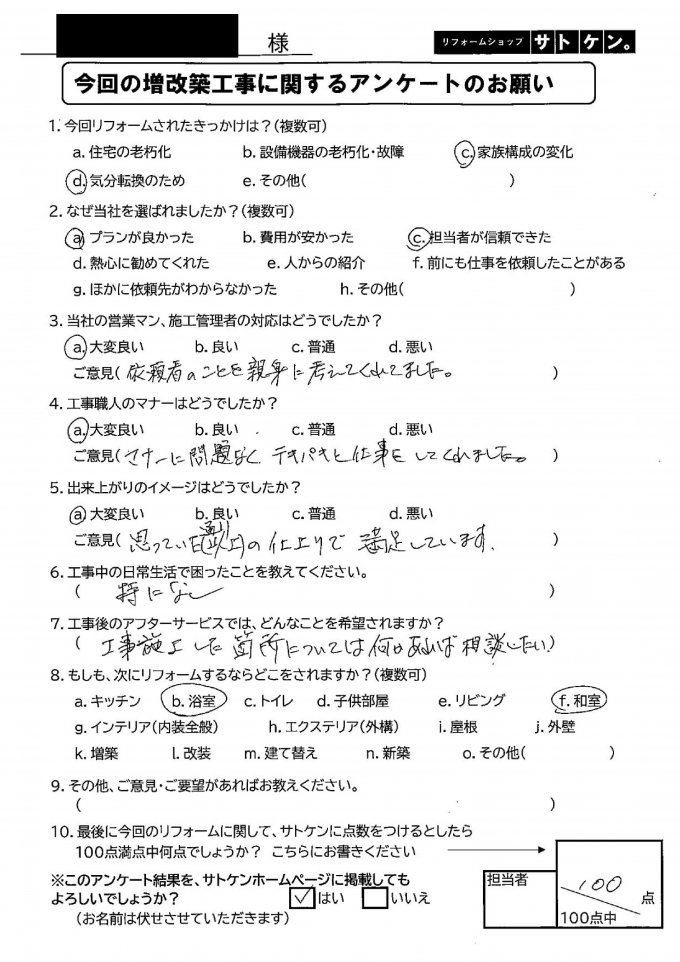 様
リフォームショップ サトケン。
今回の増改築工事に関するアンケートのお願い
1. 今回リフォームされたきっかけは？(複数可)
a. 住宅の老朽化 b. 設備機器の老朽化・故障 c. 家族構成の変化
d. 気分転換のため e. その他( )
2. なぜ当社を選ばれましたか？(複数可)
a. プランが良かった b. 費用が安かった c. 担当者が信頼できた
d. 熱心に勧めてくれた e. 人からの紹介 f. 前にも仕事を依頼したことがある
g. ほかに依頼先がわからなかった h. その他( )
3. 当社の営業マン、施工管理者の対応はどうでしたか？
a. 大変良い b. 良い c. 普通 d. 悪い
ご意見( 依頼者のことを親身に考えてくれてました。 )
4. 工事職人のマナーはどうでしたか？
a. 大変良い b. 良い c. 普通 d. 悪い
ご意見( マナーに問題なく テキパキと仕事をしてくれました。 )
5. 出来上がりのイメージはどうでしたか？
a. 大変良い b. 良い c. 普通 d. 悪い
ご意見( 思っていた通り(以上)の仕上りで 満足しています. )
6. 工事中の日常生活で困ったことを教えてください。
( 特になし )
7. 工事後のアフターサービスでは、どんなことを希望されますか？
( 工事施工した箇所については何かあれば相談したい )
8. もしも、次にリフォームするならどこをされますか？(複数可)
a. キッチン b. 浴室 c. トイレ d. 子供部屋 e. リビング f. 和室
g. インテリア(内装全般) h. エクステリア(外構) i. 屋根 j. 外壁
k. 増築 l. 改装 m. 建て替え n. 新築 o. その他( )
9. その他、ご意見・ご要望があればお教えください。
( )
10. 最後に今回のリフォームに関して、サトケンに点数をつけるとしたら
100点満点中何点でしょうか？ こちらにお書きください
担当者
100 点
100点中
※このアンケート結果を、サトケンホームページに掲載しても
よろしいでしょうか？ ✓はい □いいえ
(お名前は伏せさせていただきます)